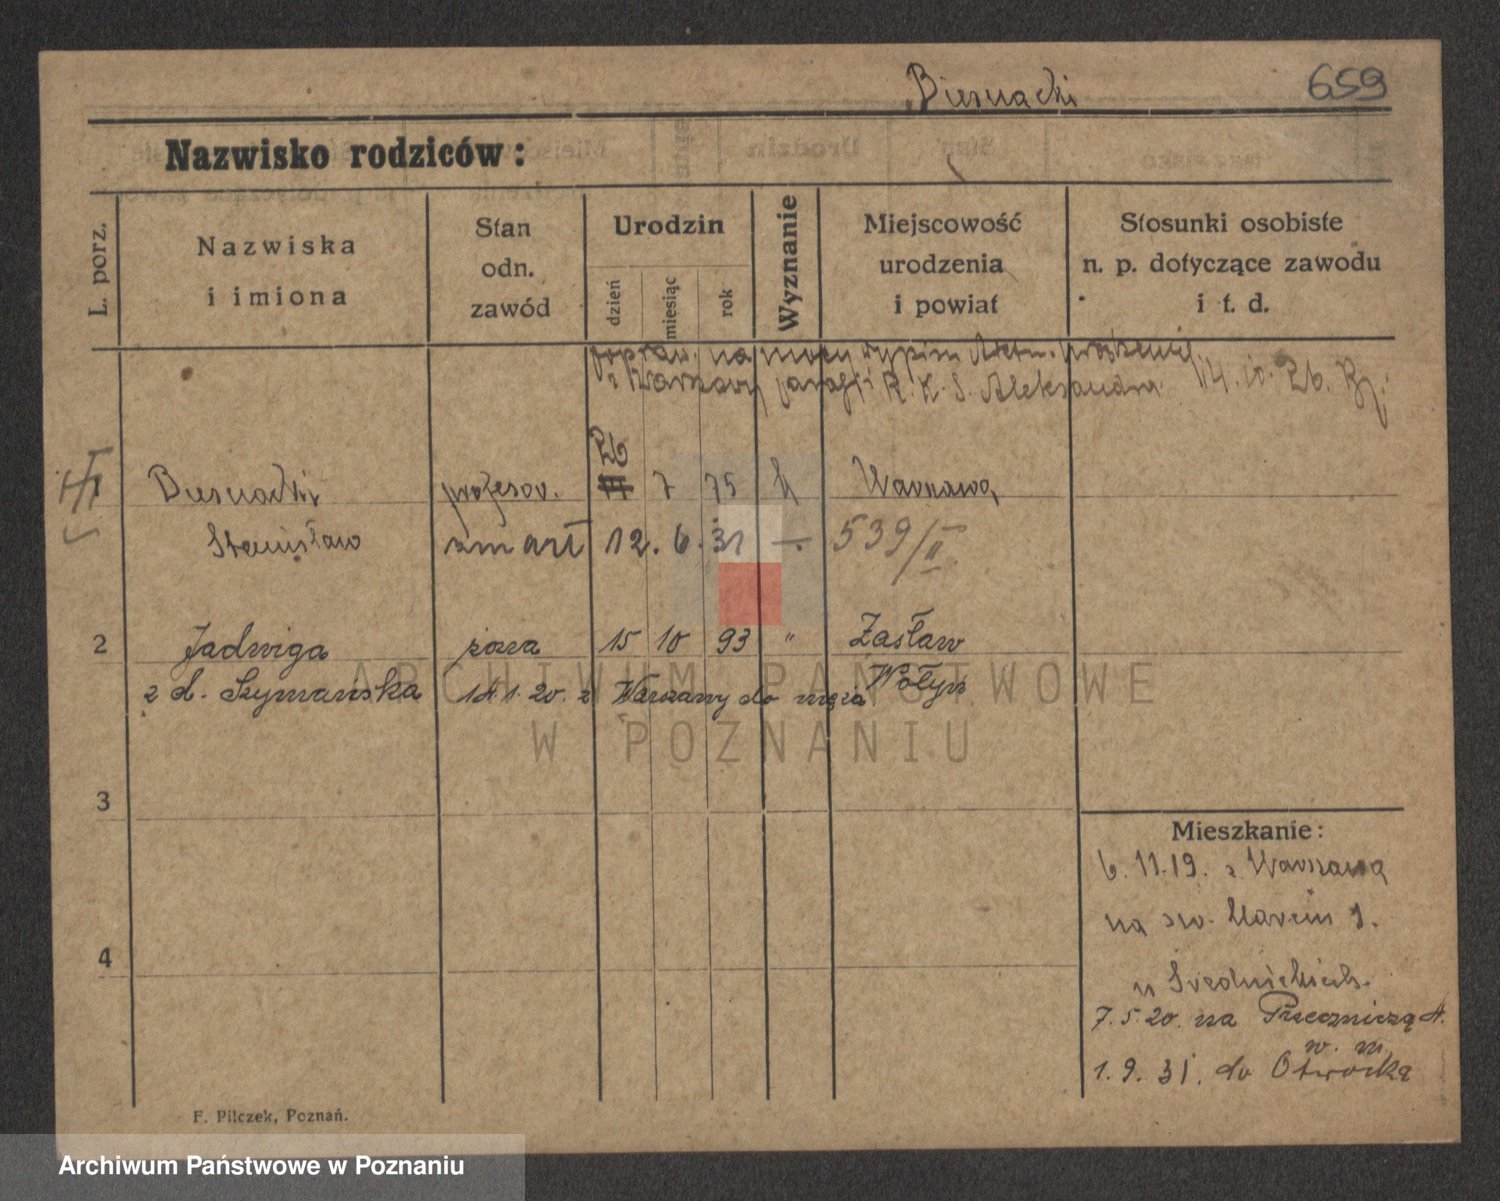 Biernacki 659
Nazwisko rodziców:
L. porz.
Nazwiska
i imiona
Stan
odn.
zawód
Urodzin
dzień
miesiąc
rok
Wyznanie
Miejscowość
urodzenia
i powiat
Stosunki osobiste
n. p. dotyczące zawodu
i t. d.
popraw. na mocy wypisu Aktu urodzenia
z Warszawy parafji R. K. S. Aleksandra 14. 10. 26.
Biernacki profesor. 26 7 75 k Warszawa
Stanisław zmarł 12. 6. 31 —. 539/II
2 Jadwiga żona 15 10 93 " Zasław
z d. Szymańska 14. 1. 20. z Warszawy do męża Wołyń
3
4
Mieszkanie:
6. 11.19. z Warszawa
na św. Marcin 1.
u Średnickich.
7. 5. 20. na 4.
w. m.
1. 9. 31. do Otwocka
F. Pilczek, Poznań.
ARCHIWUM PAŃSTWOWE
W POZNANIU
Archiwum Państwowe w Poznaniu